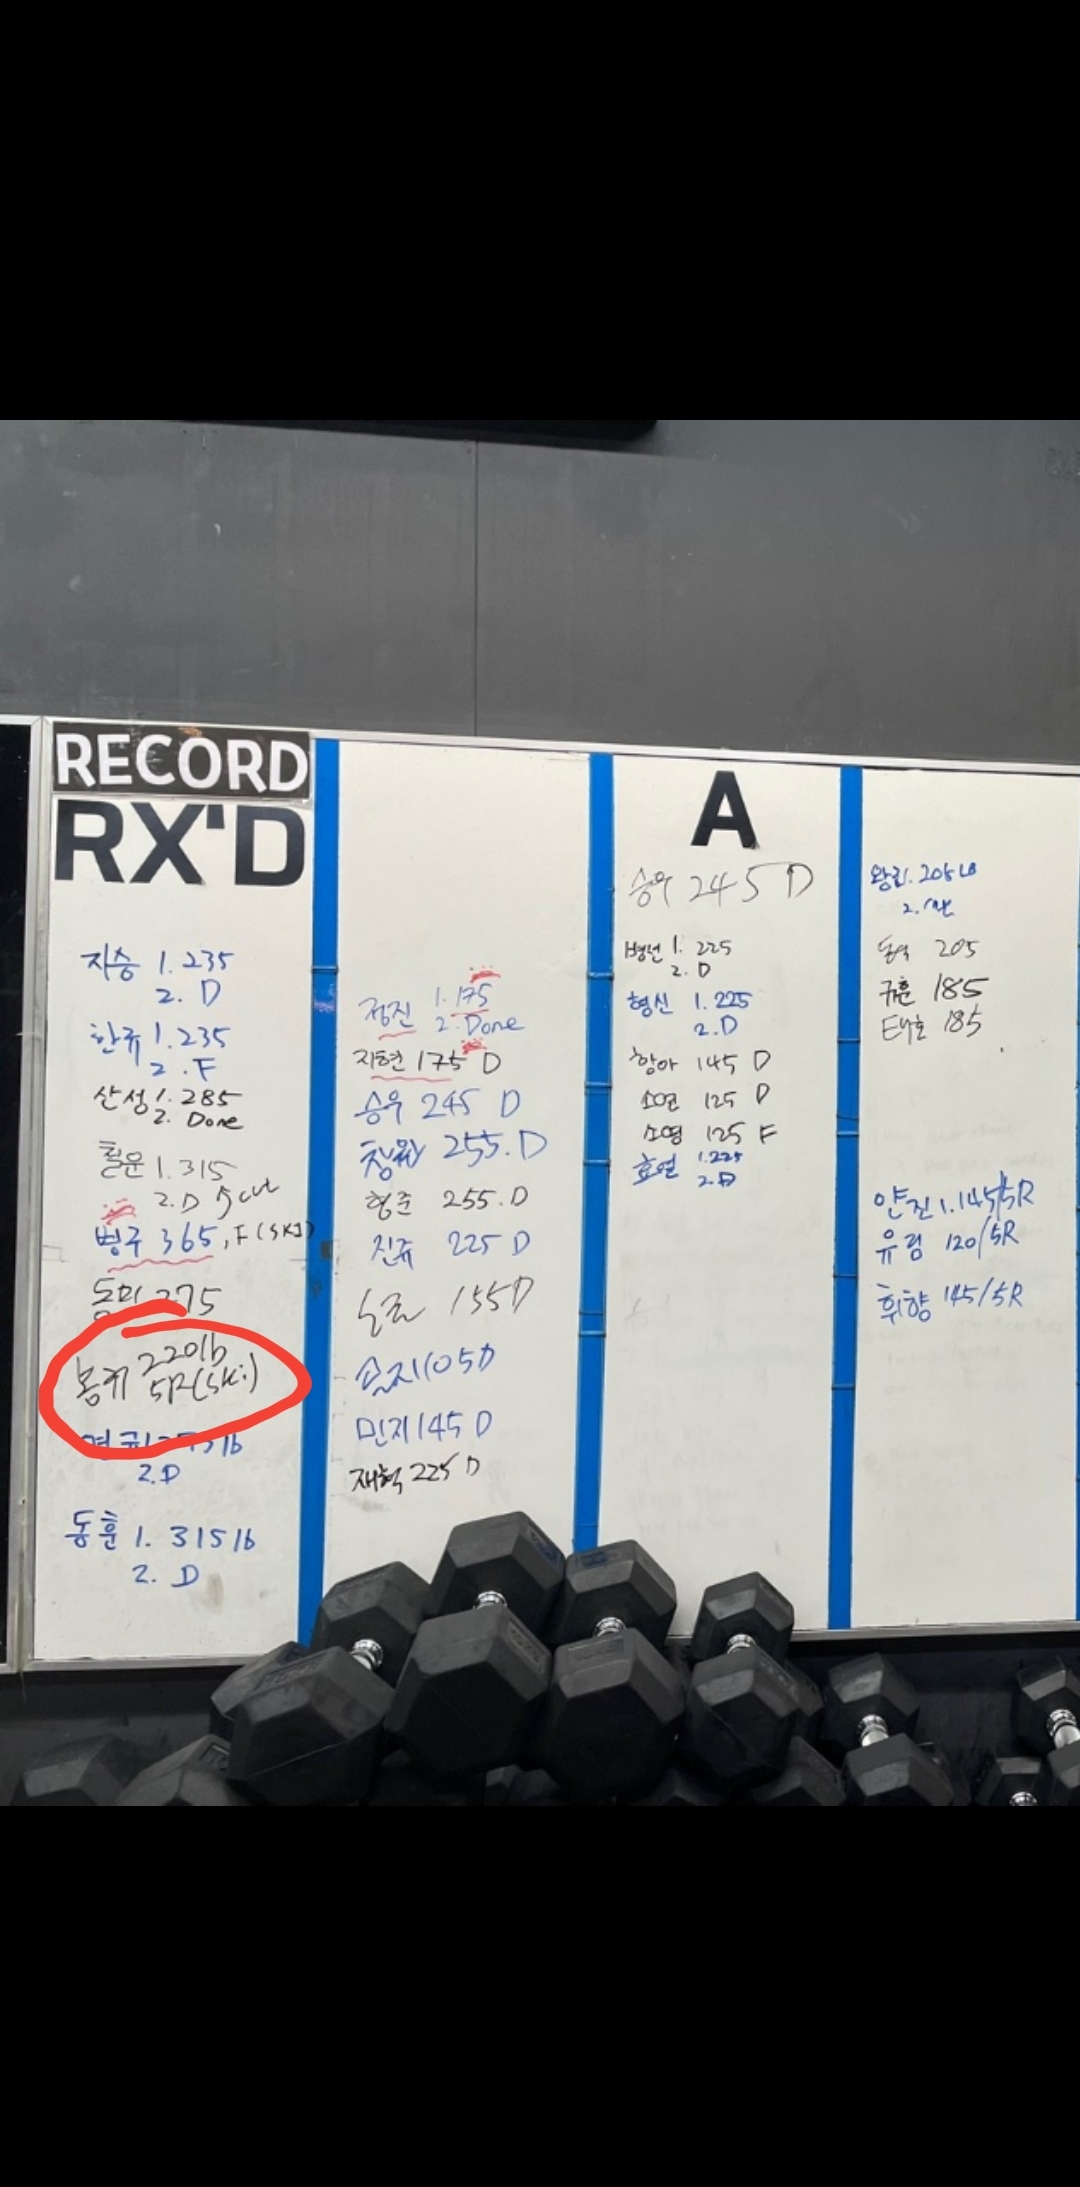 RECORD
RX'D
지승 1. 235
2. D
한규 1. 235
2. F
산성 1. 285
2. Done
철문 1. 315
2. D
병주 365, F (SKI)
275
봉귀 220lb
5R(SKi)
2. D
동훈 1. 315 lb
2. D
정진 1. 175
2. Done
지현 175 D
승우 245 D
창원 255. D
형준 255. D
진규 225 D
155D
105D
민지 145 D
재혁 225 D
A
승우 245 D
병년 1. 225
2. D
형신 1. 225
2. D
항아 145 D
소연 125 D
소영 125 F
효연 1. 225
2. D
205 LB
2.
205
규훈 185
태호 185
안진 1. 145/5R
유림 120/5R
휘향 145/5R